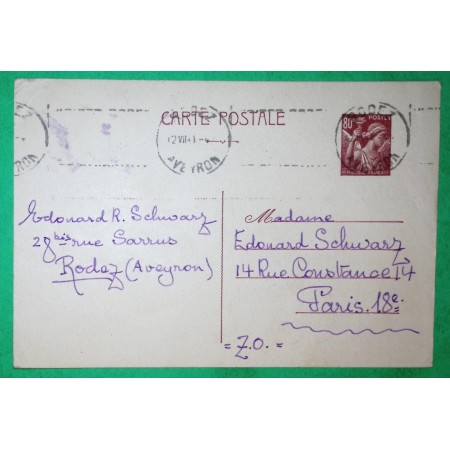 CARTE POSTALE
RODEZ
AVEYRON
80c
POSTES
Edouard R. Schwarz
28 bis rue Sarrus
Rodez (Aveyron)
Madame
Edouard Schwarz
14 Rue Constance 14
Paris. 18e.
= Z.O. =